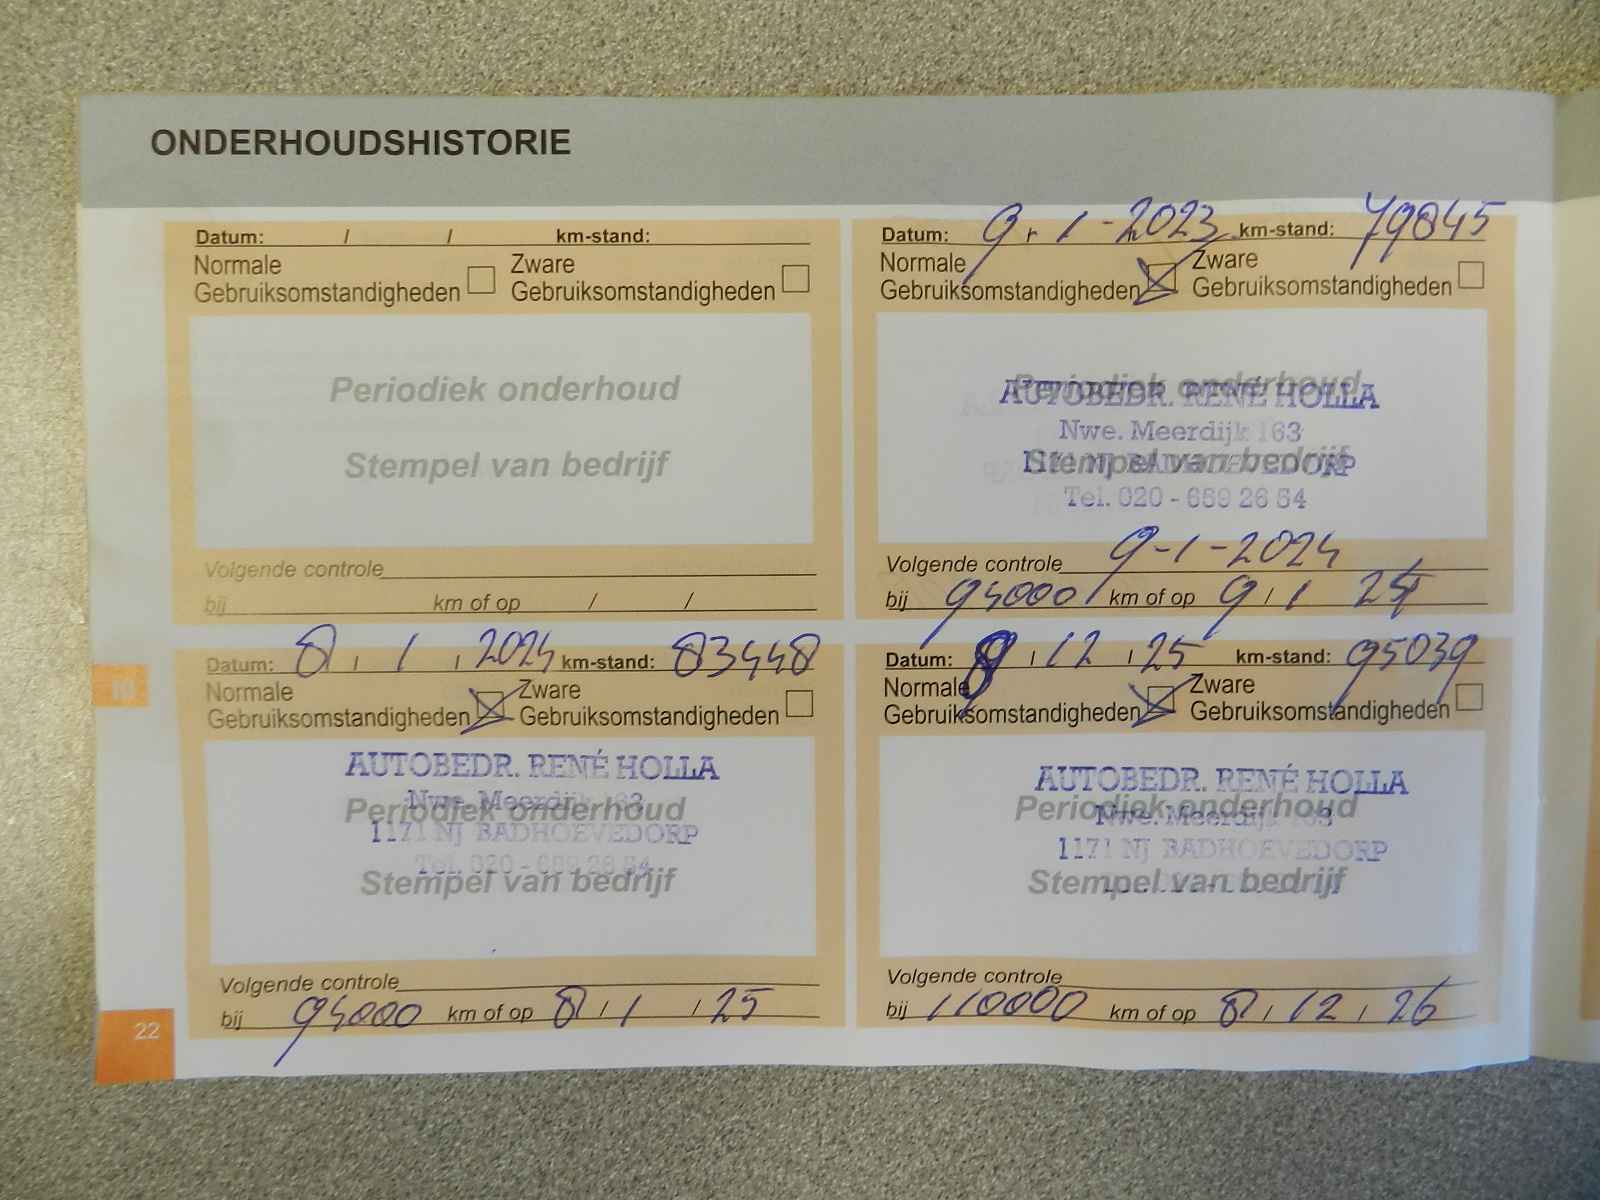 ONDERHOUDSHISTORIE
Datum: / / km-stand:
Normale Zware
Gebruiksomstandigheden Gebruiksomstandigheden
Periodiek onderhoud
Stempel van bedrijf
Volgende controle
bij km of op / /
Datum: 9-1-2023 km-stand: 79845
Normale Zware
Gebruiksomstandigheden Gebruiksomstandigheden
Periodiek onderhoud
AUTOBEDR. RENÉ HOLLA
Nwe. Meerdijk 163
Stempel van bedrijf
1171 NJ BADHOEVEDORP
Tel. 020 - 659 26 54
Volgende controle 9-1-2024
bij 94000 km of op 9 / 1 24
Datum: 8 / 1 / 2024 km-stand: 83448
Normale Zware
Gebruiksomstandigheden Gebruiksomstandigheden
AUTOBEDR. RENÉ HOLLA
Nwe. Meerdijk 163
Periodiek onderhoud
1171 NJ BADHOEVEDORP
Tel. 020 - 659 26 54
Stempel van bedrijf
Volgende controle
bij 94000 km of op 8 / 1 / 25
Datum: 8 / 12 / 25 km-stand: 95039
Normale Zware
Gebruiksomstandigheden Gebruiksomstandigheden
AUTOBEDR. RENÉ HOLLA
Periodiek onderhoud
Nwe. Meerdijk 163
1171 NJ BADHOEVEDORP
Stempel van bedrijf
Volgende controle
bij 110000 km of op 8 / 12 / 26
10
22